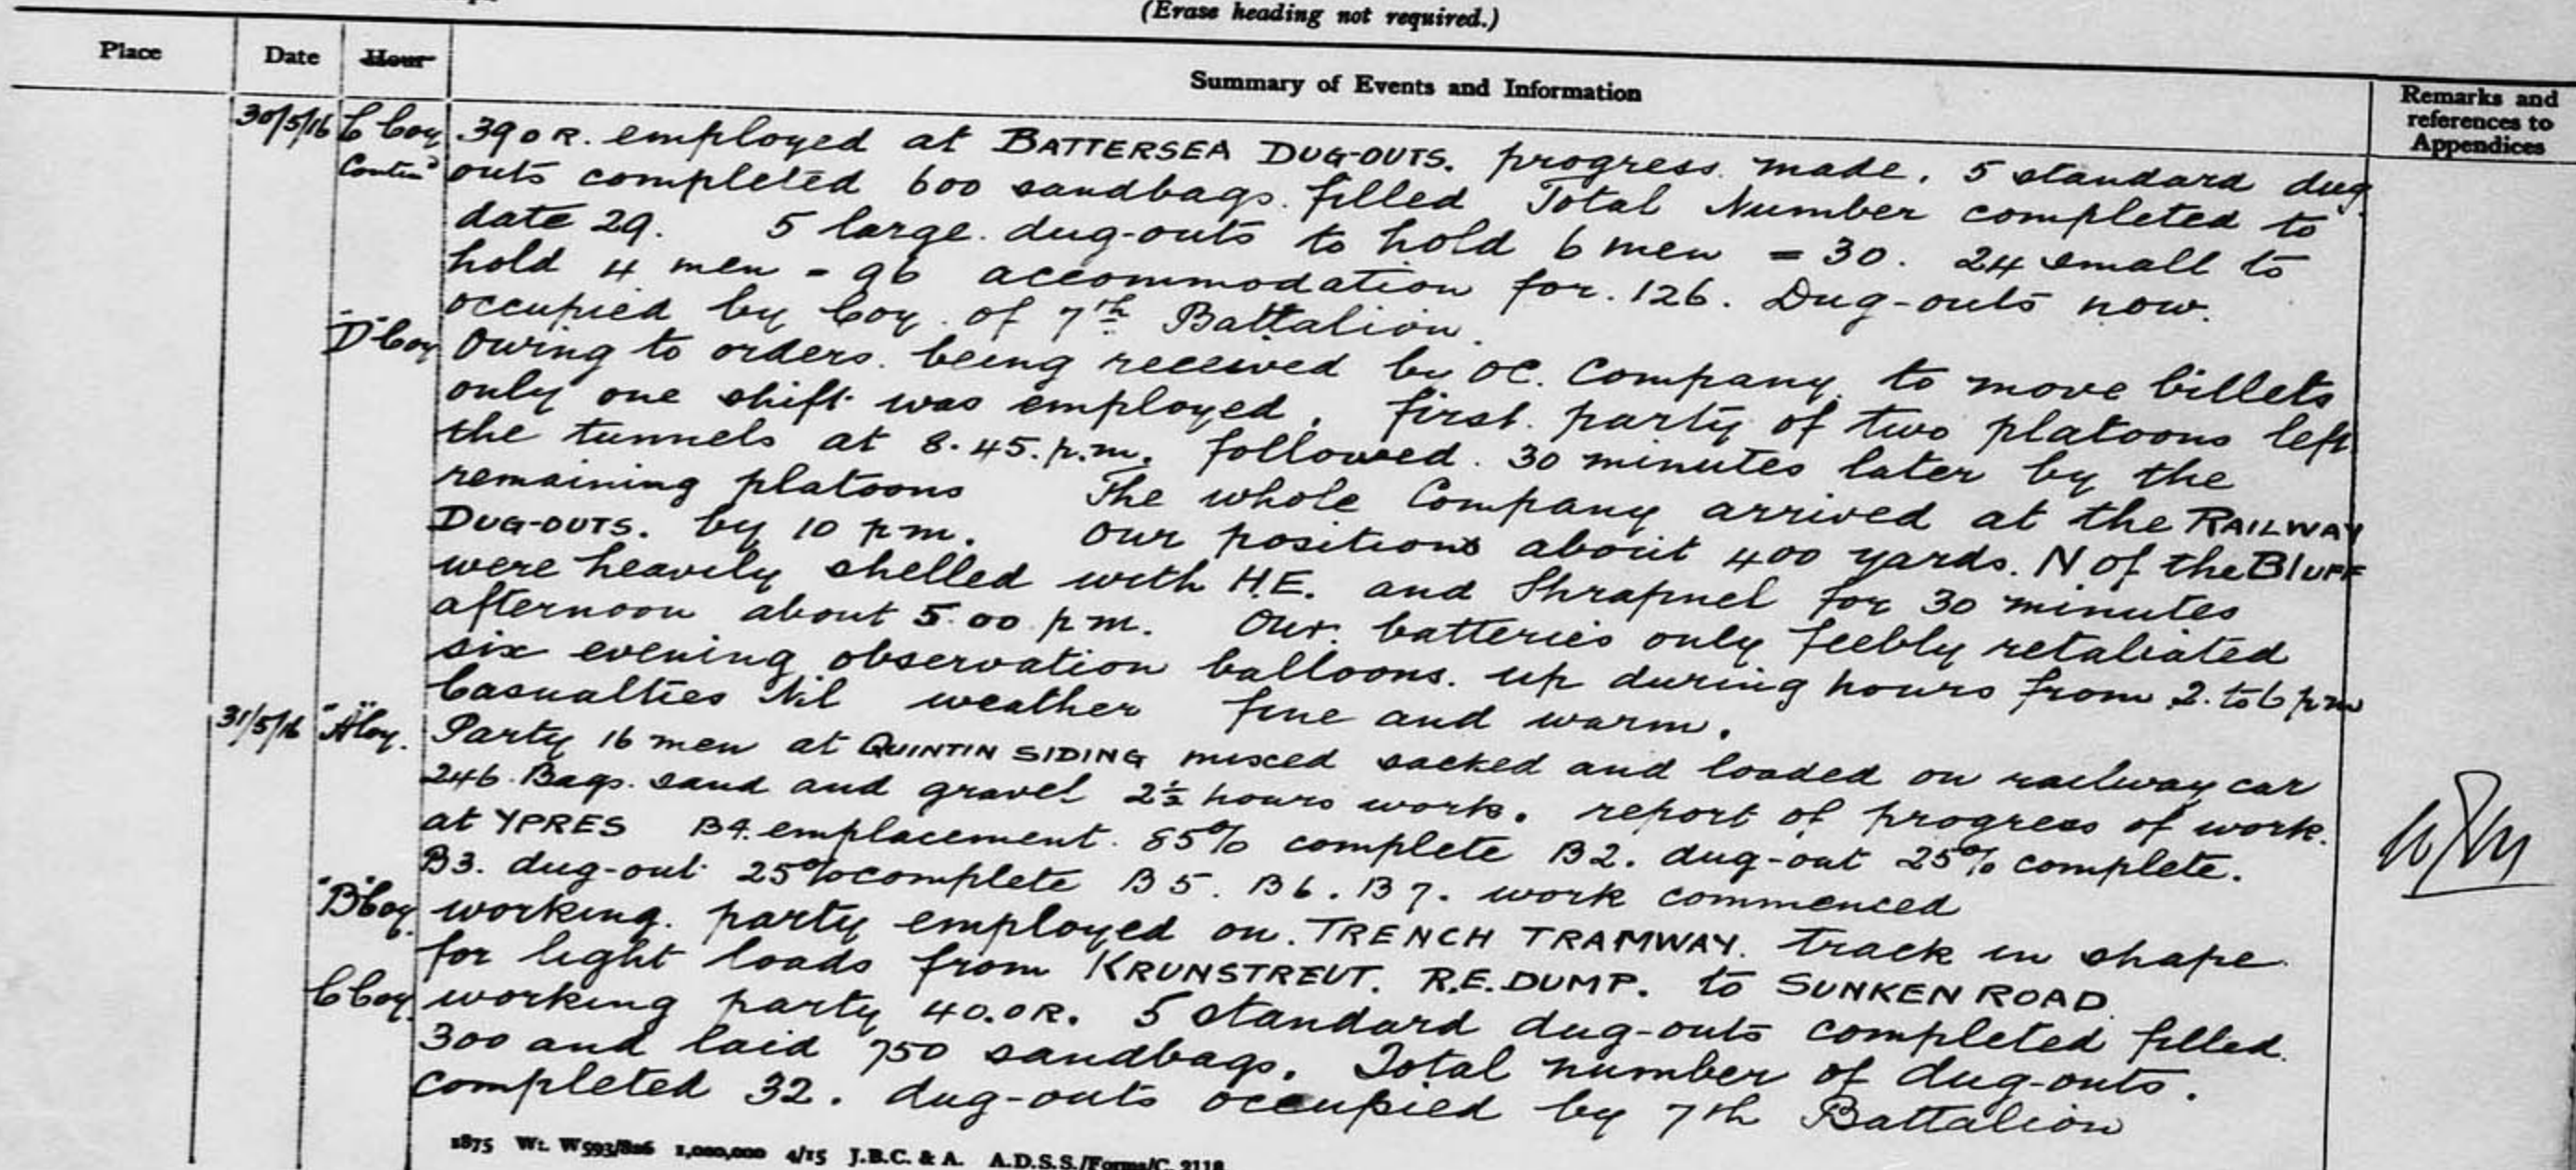 (Erase heading not required.)
Place Date Hour Summary of Events and Information Remarks and references to Appendices
30/5/16 C Coy 39 O R. employed at BATTERSEA DUG-OUTS. progress made. 5 standard dug
Contin'd outs completed 600 sandbags filled Total Number completed to
date 29. 5 large dug-outs to hold 6 men = 30. 24 small to
hold 4 men = 96 accommodation for 126. Dug-outs now
occupied by Coy of 7th Battalion.
"D" Coy Owing to orders being received by OC. Company to move billets
only one shift was employed, first party of two platoons left
the tunnels at 8.45.p.m. followed 30 minutes later by the
remaining platoons The whole Company arrived at the RAILWAY
DUG-OUTS. by 10 pm. Our positions about 400 yards. N of the BLUFF
were heavily shelled with H.E. and Shrapnel for 30 minutes
afternoon about 5.00 pm. Our batteries only feebly retaliated
six evening observation balloons up during hours from 2. to 6 pm
Casualties Nil weather fine and warm.
31/5/16 "A" Coy. Party 16 men at QUINTIN SIDING mixed sacked and loaded on railway car
246 Bags sand and gravel 2½ hours work. report of progress of work
at YPRES B4. emplacement 85% complete B2. dug-out 25% complete.
B3. dug-out 25% complete B5. B6. B7. work commenced
"B" Coy. working party employed on TRENCH TRAMWAY. track in shape
for light loads from KRUNSTREUT. R.E. DUMP. to SUNKEN ROAD.
C Coy. working party 40.OR. 5 standard dug-outs completed filled
300 and laid 750 sandbags. Total number of dug-outs.
completed 32. dug-outs occupied by 7th Battalion
1875 Wt. W593/826 1,000,000 4/15 J.B.C. & A. A.D.S.S./Forms/C. 2118